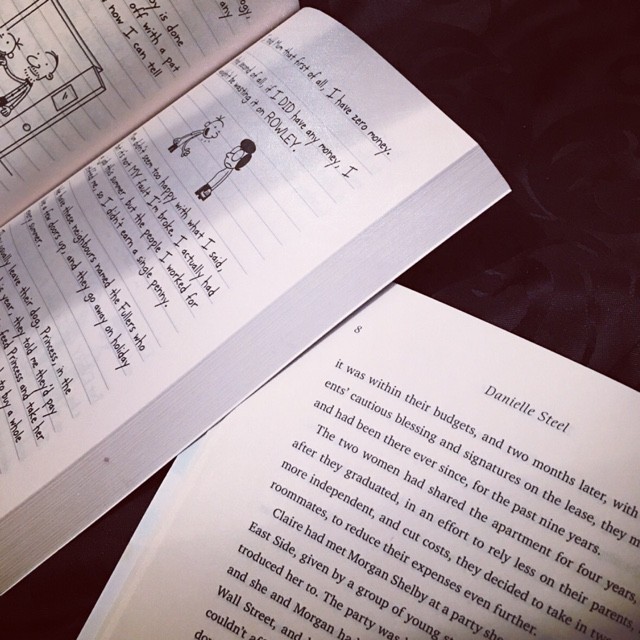 is done
off with a pat
now I can tell
any
that first of all, I have zero money.
of all, if I DID have any money, I
wasting it on ROWLEY.
seem too happy with what I said,
MY fault I'm broke. I actually had
this summer, but the people I worked for
me, so I didn't earn a single penny.
neighbours named the Fullers who
up, and they go away on holiday
summer.
leave their dog, Princess, in the
year they told me they'd pay
feed Princess and take her
to buy a whole
8
Danielle Steel
it was within their budgets, and two months later, with
ents' cautious blessing and signatures on the lease, they m
and had been there ever since, for the past nine years.
The two women had shared the apartment for four years,
after they graduated, in an effort to rely less on their parents,
more independent, and cut costs, they decided to take in
roommates, to reduce their expenses even further.
Claire had met Morgan Shelby at a party she
East Side, given by a group of young s
troduced her to. The party was
and she and Morgan ha
Wall Street, and
couldn't aff